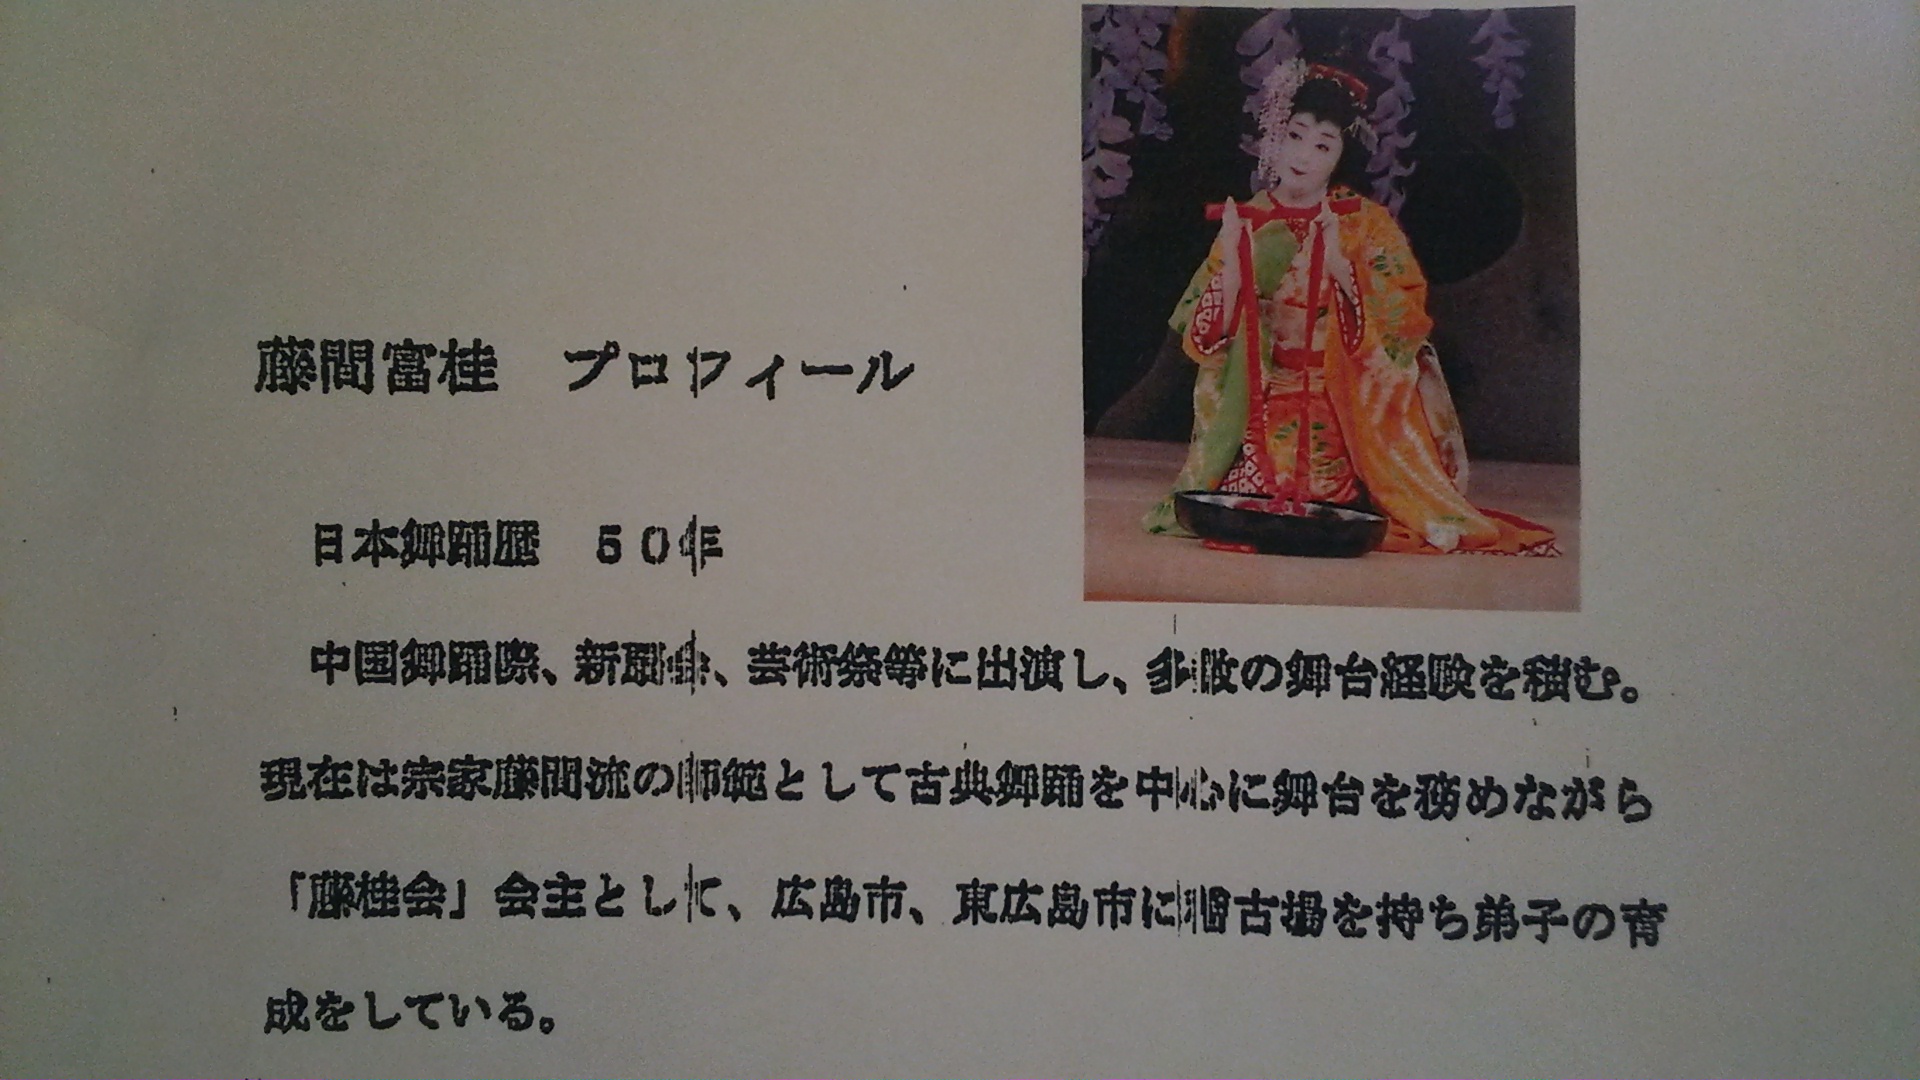 藤間富桂　プロフィール
日本舞踊歴　５０年
中国舞踊際、新扇会、芸術祭等に出演し、多数の舞台経験を積む。
現在は宗家藤間流の師範として古典舞踊を中心に舞台を務めながら
「藤桂会」会主として、広島市、東広島市に稽古場を持ち弟子の育
成をしている。